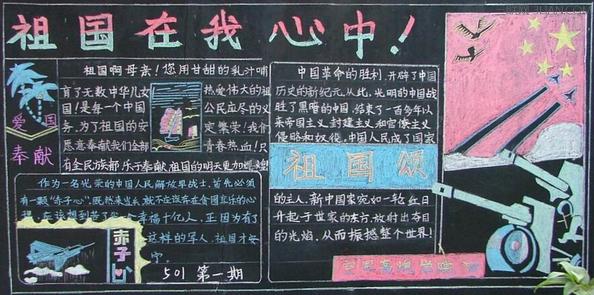 祖国在我心中!
爱国
奉献
祖国啊母亲!您用甘甜的乳汁哺
育了无数中华儿女
国!是每一个中国
务,为了祖国的安
愿意奉献我们全部
热爱伟大的祖
公民应尽的义
定繁荣!我们
青春热血!只
有全民族都乐于奉献,祖国的明天更加辉煌!
作为一名光荣的中国人民解放军战士,首先必须
有一颗“赤子心”,既然来当兵,就不在该
幸福十亿人,正因为有了
这样的军人,祖国才安
宁。
赤子心
501 第一期
中国革命的胜利,开辟了中国
历史的新纪元。从此,光明的中国战
胜了黑暗的中国,结束了一百多年以
来帝国主义,封建主义和官僚主义
侵略和奴役。中国人民成了国家
祖国颂
的主人。新中国宛如一轮红日
升起于世家的东方,放射出夺目
的光焰,从而振撼整个世界!